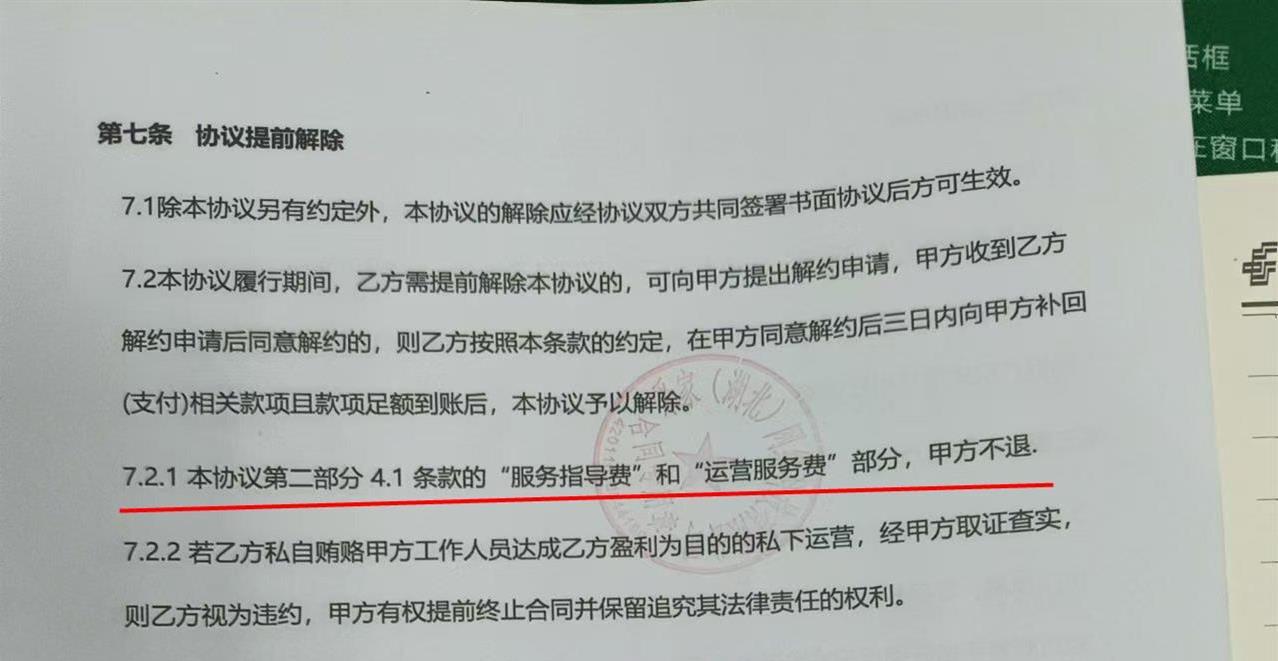 第七条 协议提前解除
7.1除本协议另有约定外，本协议的解除应经协议双方共同签署书面协议后方可生效。
7.2本协议履行期间，乙方需提前解除本协议的，可向甲方提出解约申请，甲方收到乙方
解约申请后同意解约的，则乙方按照本条款的约定，在甲方同意解约后三日内向甲方补回
(支付)相关款项且款项足额到账后，本协议予以解除。
7.2.1 本协议第二部分 4.1 条款的“服务指导费”和“运营服务费”部分，甲方不退.
7.2.2 若乙方私自贿赂甲方工作人员达成乙方盈利为目的的私下运营，经甲方取证查实，
则乙方视为违约，甲方有权提前终止合同并保留追究其法律责任的权利。
家（湖北）网
合同
框
菜单
窗口